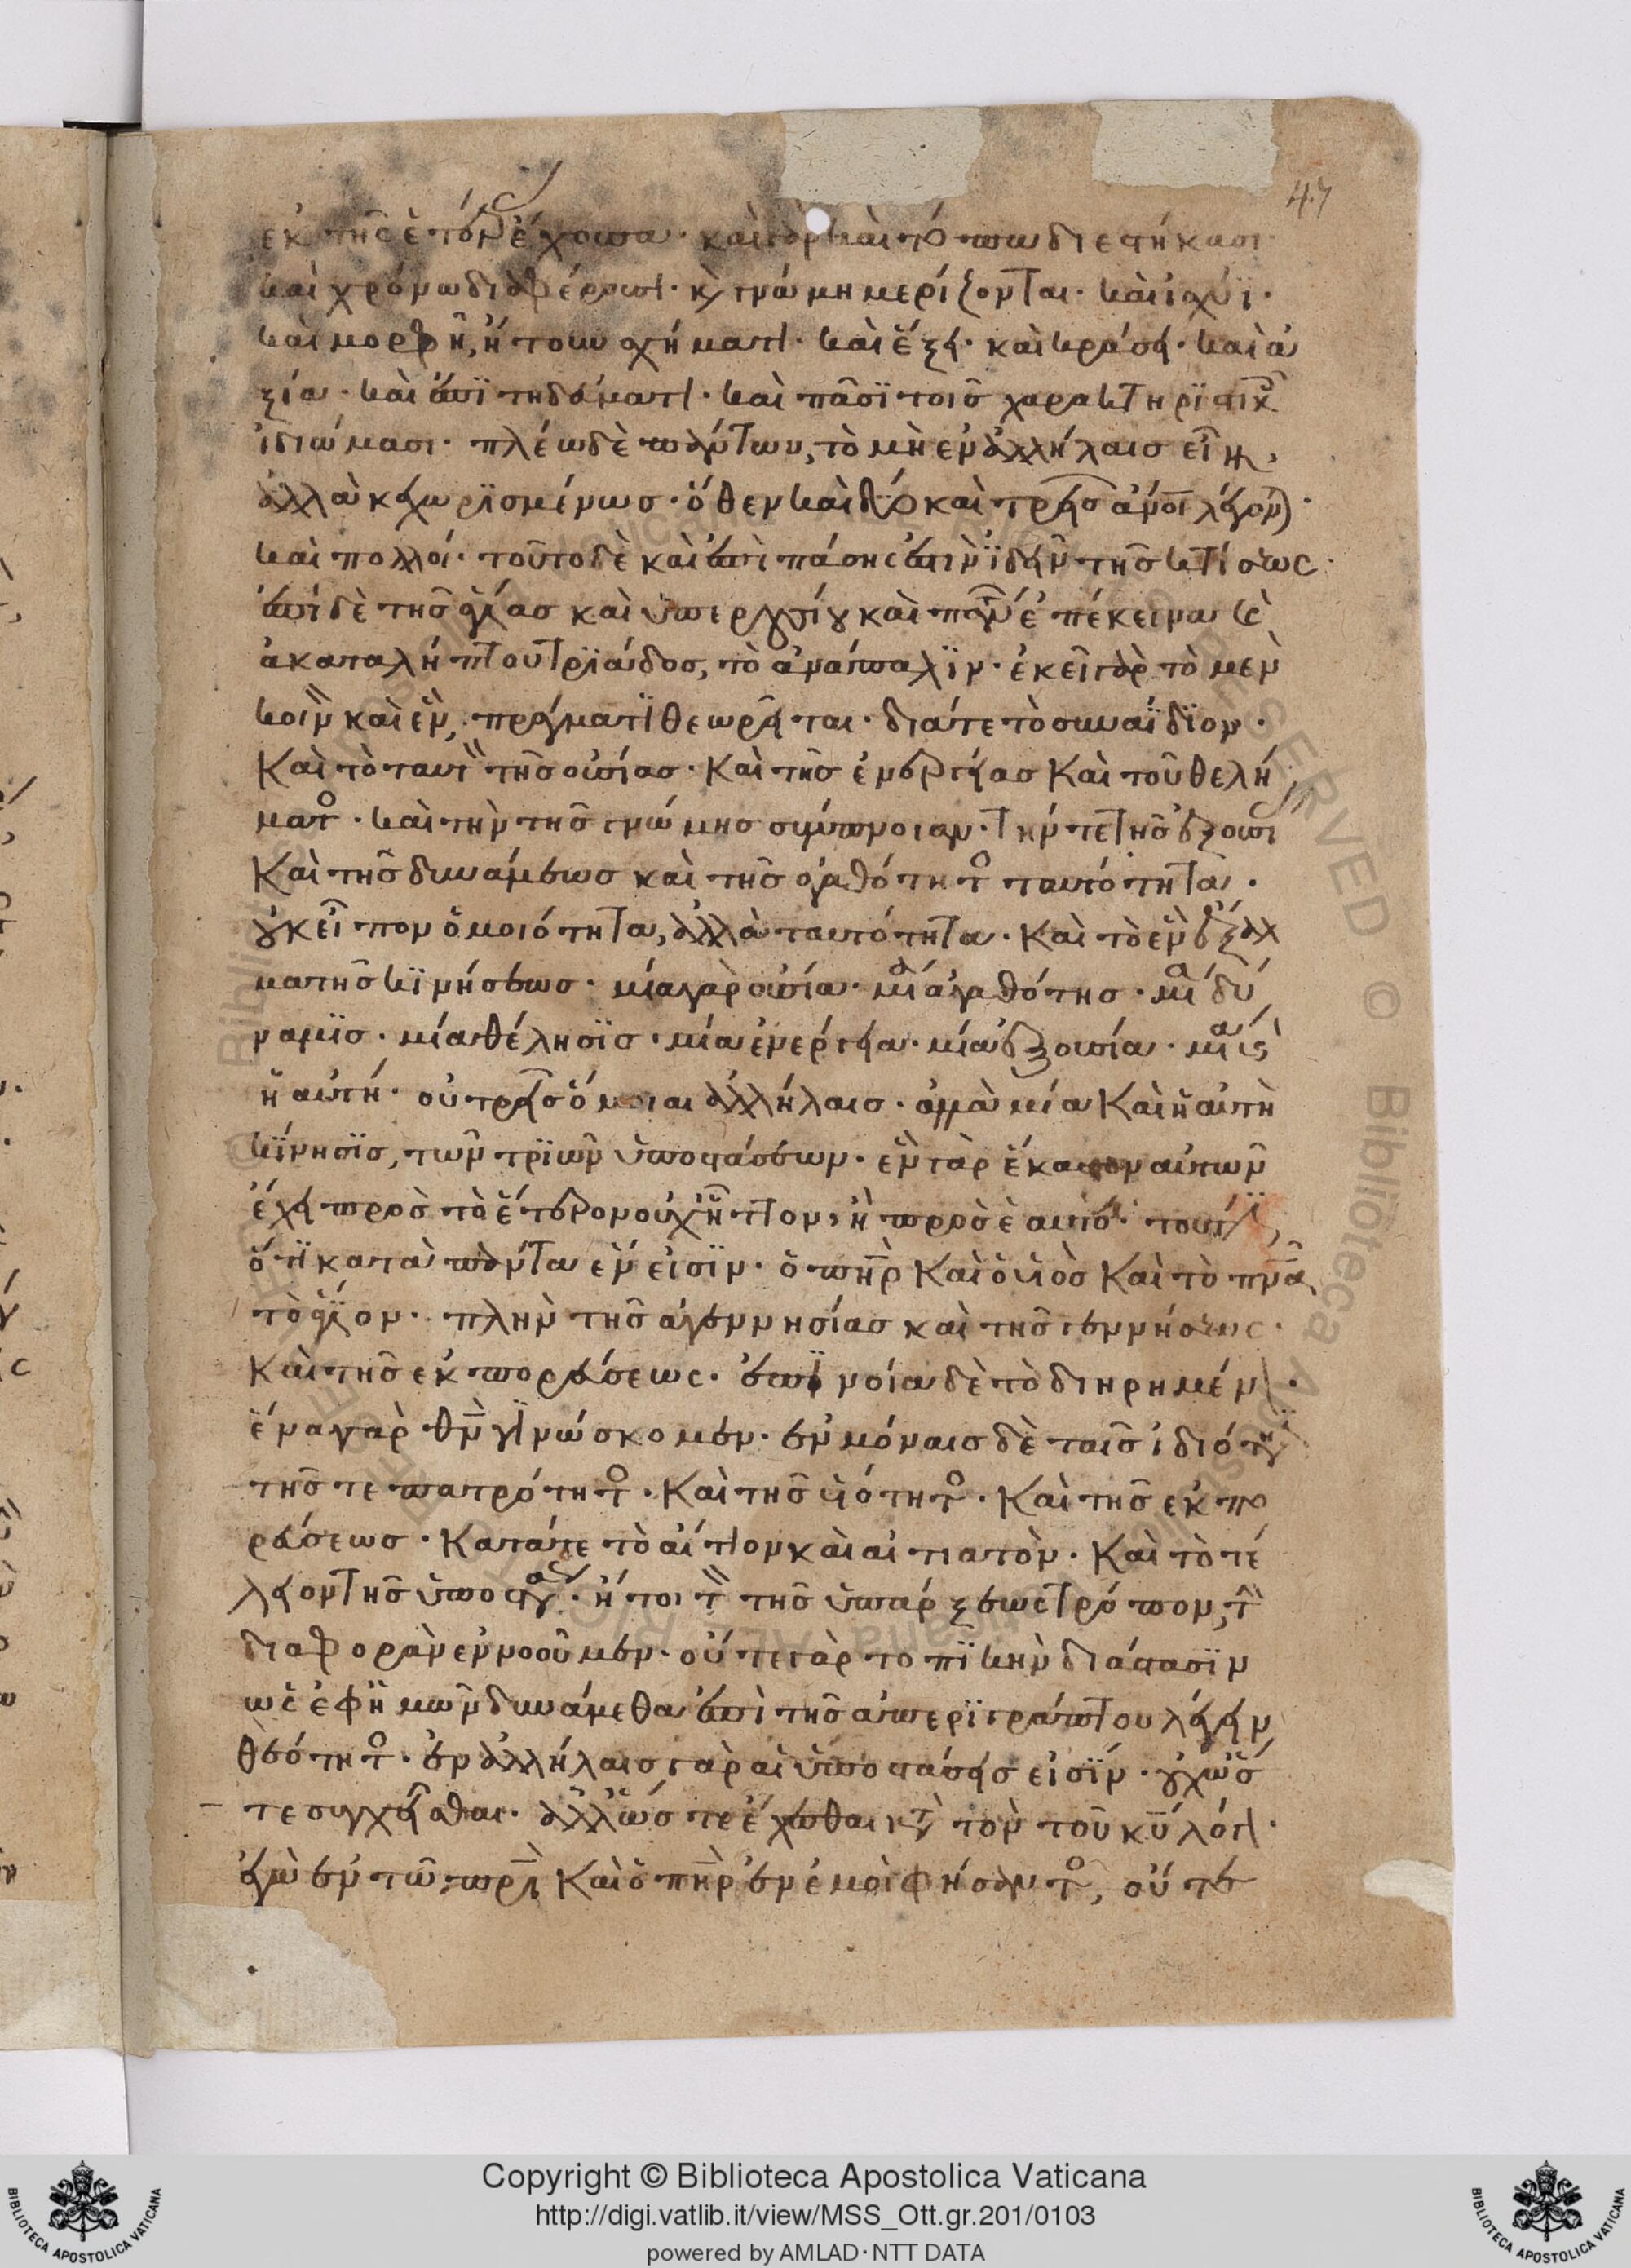 47
ἐκ τῆς ἑτέρας ἔχουσα· καὶ γὰρ καὶ τόπω διεστήκασι
καὶ χρόνω διαφέρουσι· κ γνώμη μερίζονται· καὶ ἰσχύϊ·
καὶ μορφῆ, ἤτουν σχήματι· καὶ ἕξει· καὶ κράσει· καὶ ἀ
ξία· καὶ ἐπϊτηδεύματι· καὶ πᾶσϊ τοῖς χαρακτηρϊστικ
ἰδιώμασι· πλέω δὲ πάντων, τὸ μὴ ἐν ἀλλήλαις εἶναι,
ἀλλὰ κεχωρϊσμένως· ὅθεν καὶ δύο καὶ τρεῖς ἄνοι λέγοντ·
καὶ πολλοί· τοῦτο δὲ καὶ ἐπὶ πάσης ἐστὶν ϊδεῖν τῆς κτίσεως·
ἐπὶ δὲ τῆς ἁγίας καὶ ὑπερουσίου καὶ πάντ ἐπέκεινα κ
ἀκαταλήπτου τρϊάδος, τὸ ἀνάπαλϊν· ἐκεῖ γὰρ τὸ μὲν
κοιν καὶ ἓν, πράγματϊ θεωρεῖται· διά τε τὸ συναΐδϊον·
Καὶ τὸ ταυτ τῆς οὐσίας· Καὶ τῆς ἐνεργείας Καὶ τοῦ θελή
ματ· καὶ τὴν τῆς γνώμης σύμπνοιαν· τήν τε τῆς ἐξουσί
Καὶ τῆς δυνάμεως καὶ τῆς ἀγαθότητ ταυτότητα·
οὐκ εἶπον ὁμοιότητα, ἀλλὰ ταυτότητα· Καὶ τὸ ἓν ἔξαλ
μα τῆς κϊνήσεως· μία γὰρ οὐσία· μία ἀγαθότης· μία δύ
ναμϊς· μία θέλησϊς· μία ἐνέργεια· μία ἐξουσία· μία κ
ἡ αὐτή· οὐ τρεῖς ὅμοιαι ἀλλήλαις· ἀλλὰ μία Καὶ ἡ αὐτὴ
κίνησϊς, τῶν τρϊῶν ὑποστάσεων· ἓν γὰρ ἕκαστον αὐτῶν
ἔχει πρὸς τὸ ἕτερον οὐχ ἧττον, ἢ πρὸς ἑαυτό· τουτ,
ὅτϊ κατὰ πάντα ἕν εἰσϊν· ὁ πηρ Καὶ ὁ υἱὸς Καὶ τὸ πνα
τὸ ἅγϊον· πλὴν τῆς ἀγεννησίας καὶ τῆς γεννήσεως·
Καὶ τῆς ἐκπορεύσεως· ἐπϊνοία δὲ τὸ διηρημέν·
ἕνα γὰρ θν γϊνώσκομεν· ἐν μόναις δὲ ταῖς ἰδιότη
τῆς τε πατρότητ· Καὶ τῆς υἱότητ· Καὶ τῆς ἐκπο
ρεύσεως· Κατά τε τὸ αἴτιον καὶ αἰτιατὸν· Καὶ τὸ τέ
λειον τῆς ὑποστ· ἤτοι τ τῆς ὑπάρξεως τρόπον, τ
διαφορὰν ἐννοοῦμεν· οὔτε γὰρ τοπϊκὴν διάστασϊν
ὡς ἐφ ἡμῶν δυνάμεθα ἐπὶ τῆς ἀπερϊγράπτου λέγειν
θεότητ· ἐν ἀλλήλαις γὰρ αἱ ὑποστάσεις εἰσϊν· οὐχ ὥσ
τε συγχεῖσθαι· ἀλλ ὥστε ἔχεσθαι κτ τὸν τοῦ κυ λόγ·
ἐγὼ ἐν τῶ πρι, Καὶ ὁ πηρ ἐν ἐμοὶ φήσαντ, οὔτε